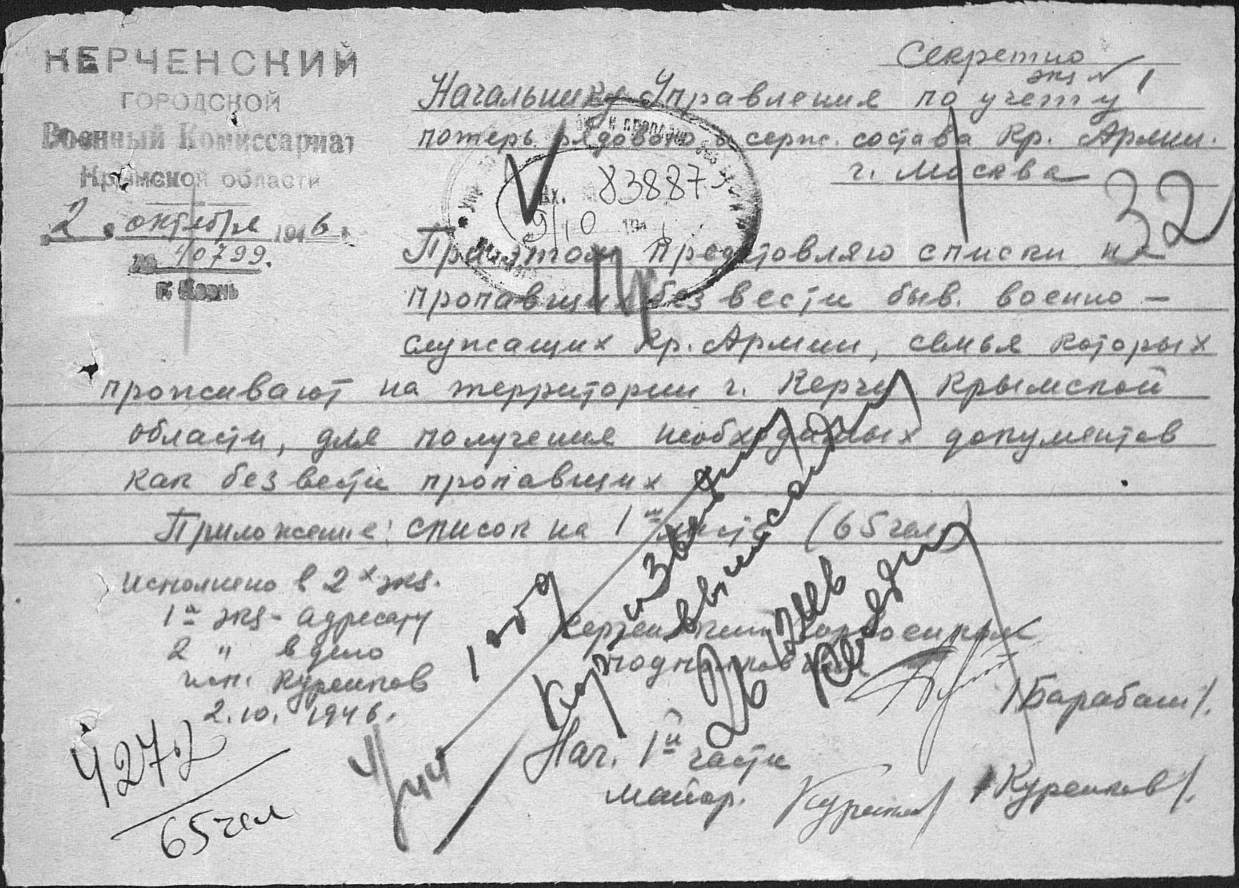 КЕРЧЕНСКИЙ
ГОРОДСКОЙ
Военный Комиссариат
Крымской области
2 октября 1946 г.
№ 40799.
г. Керчь
Секретно
экз № 1
Начальнику Управления по учету
потерь рядового и серж. состава Кр. Армии.
г. Москва
Вх. 83887
9/10 194
32
При этом представляю списки на
пропавших без вести быв. военно-
служащих Кр. Армии, семья которых
проживают на территории г. Керчи Крымской
области, для получения необходимых документов
как без вести пропавших
Приложение: список на 1м листе (65 чел)
Исполнено в 2х экз.
1й экз - адресату
2 " в дело
исп. Куренков
2.10.1946.
4272
65 чел
подполковник
/Барабаш/.
Нач. 1й части
майор.
/Куренков/.